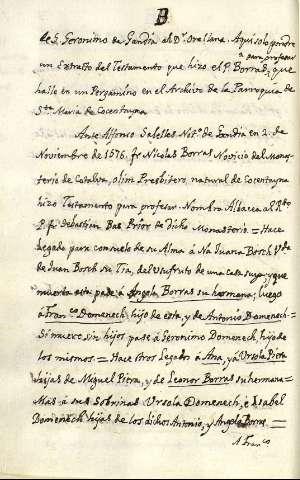 B
de S. Geronimo de Gandia al Dr. Orellana. Aqui solo pondre
para profesar
un Extracto del Testamento que hizo el P. Borras, que
halle en un Pergamino en el Archivo de la Parroquia de
Sta. Maria de Cocentayna
Ante Affonso Salelles Noto. de Gandia en 2. de
Noviembre de 1576. fr Nicolas Borras Novicio del Monas-
terio de Cotalva, olim Presbitero, natural de Cocentayna
hizo Testamento para profesar. Nombra Albacea al Rdo
P. fr. Sebastian Bas Prior de dicho Monasterio = Hace
legado para consuelo de su Alma á Na Juana Bosch Vda
de Juan Bosch su Tia, del Usufruto de una casa suya y que
muerta esta pase á Angela Borras su hermana; luego
á Franco Domenech, hijo de esta, y de Antonio Domenech =
Si muere sin hijos pase á Geronimo Domenech, hijo de
los mismos = Hace otros Legados á Ana, y á Ursola Piera
hijas de Miguel Piera, y de Leonor Borras su hermana =
Mas á sus Sobrinas Ursola Domenech, é Isabel
Domenech hijas de los dichos Antonio, y Angela Borras =
A Franco